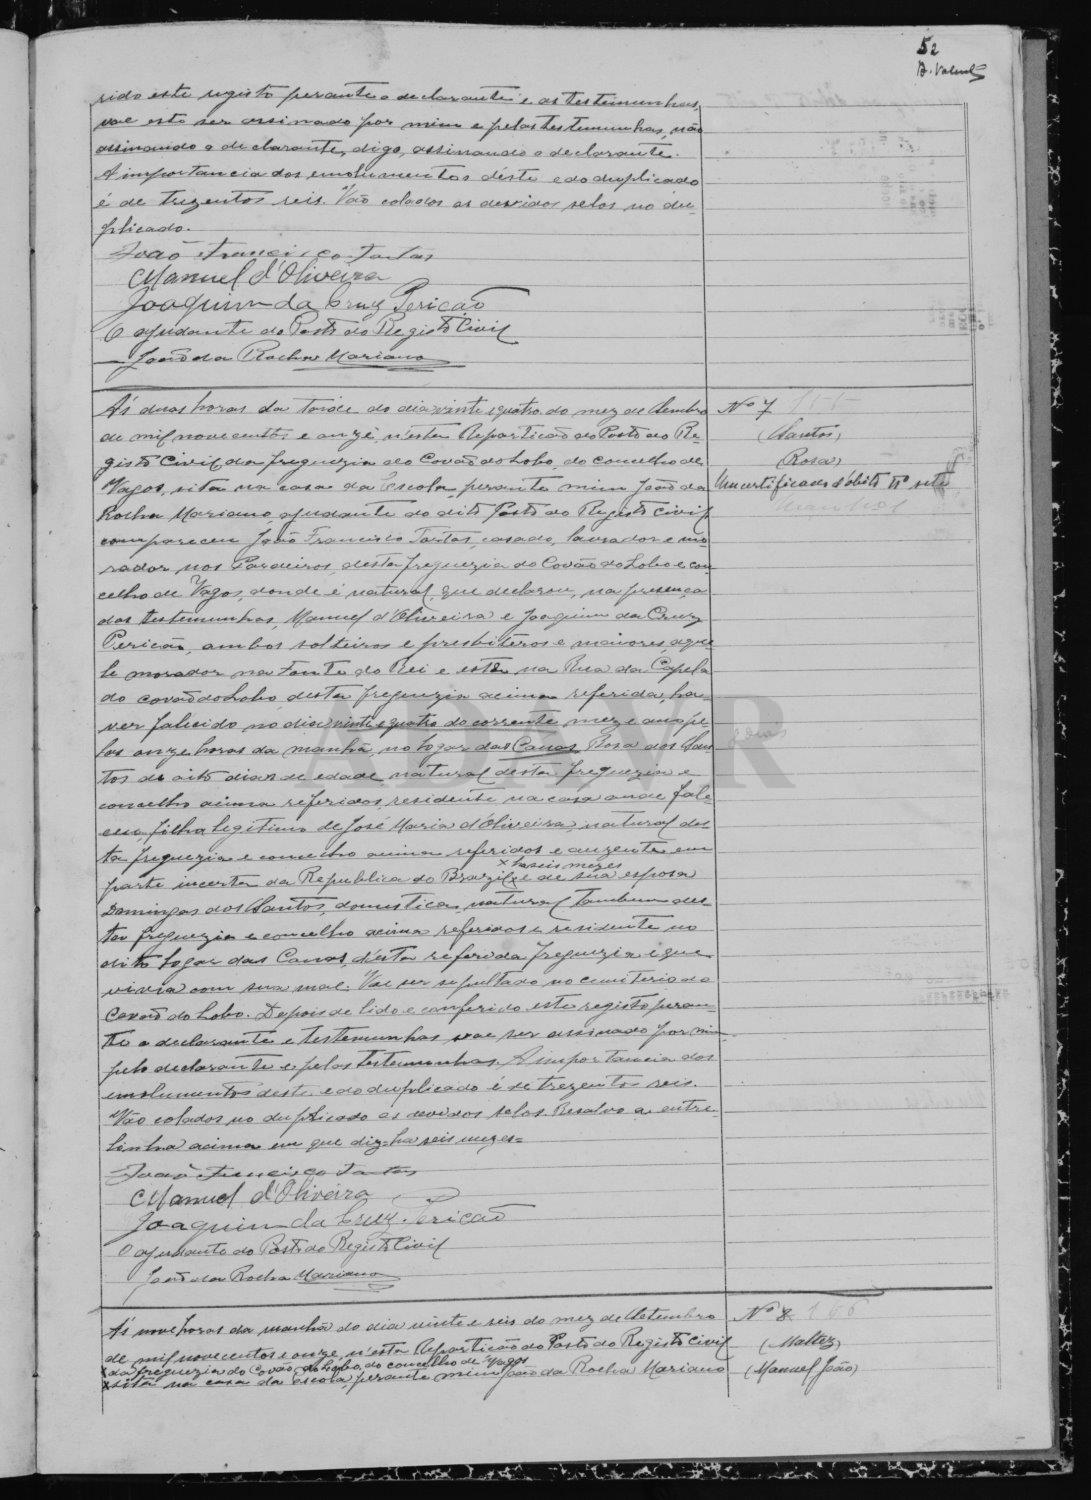 52
A. Valente
rido este registo perante o declarante e as testemunhas,
vae este ser assinado por mim e pelas testemunhas, não
assinando o declarante, digo, assinando o declarante.
A importancia dos emolumentos déste e do duplicado
é de trezentos reis. Vão colados os devidos selos no du-
plicado.
João Francisco Tartas
Manuel d'Oliveira
Joaquim da Cruz Pericão
O ajudante do Posto do Registo Civil
João da Rocha Mariano
Nº 7
(Santos)
(Rosa)
Um certificado d'óbito nº sete
Á's duas horas da tarde do dia vinte e quatro do mez de Setembro
de mil novecentos e onze n'esta Repartição do Posto do Re-
gisto Civil da freguezia do Covão do Lobo, do concelho de
Vagos, sita na casa da Escola, perante mim João da
Rocha Mariano, ajudante do dito Posto do Registo Civil
compareceu João Francisco Tartas, casado, lavrador e mo-
rador nos Pardeiros, desta freguezia do Covão do Lobo e con-
celho de Vagos, donde é natural, que declarou, na presença
das testemunhas, Manuel d'Oliveira e Joaquim da Cruz
Pericão, ambos solteiros e presbiteros e maiores, aque-
le morador na Fonte do Rei e este na Rua da Capela
do Covão do Lobo desta freguezia acima referida, ha-
ver falecido no dia vinte e quatro do corrente mez e ano pe-
las onze horas da manhã, no logar das Canas, Rosa dos San-
tos de oito dias de edade, natural desta freguezia e
concelho acima referidos, residente na casa onde fale-
ceu, filha legitima de José Maria d'Oliveira, natural des-
ta freguezia e concelho acima referidos e auzente em
x ha seis mezes
parte incerta da Republica do Brazil x e de sua esposa
Domingas dos Santos, domestica, natural tambem des-
ta freguezia e concelho acima referidos e residente no
dito logar das Canas, désta referida freguezia e que
vivia com sua mãe. Vae ser sepultado no cemiterio do
Covão do Lobo. Depois de lido e conferido este registo peran-
te o declarante e testemunhas, vae ser assinado por mim,
pelo declarante e pelas testemunhas. A importancia dos
emolumentos déste e do duplicado é de trezentos reis.
Vão colados no duplicado os devidos selos. Resalvo a entre-
linha acima em que diz = ha seis mezes =
João Francisco Tartas
Manuel d'Oliveira
Joaquim da Cruz Pericão
O ajudante do Posto do Registo Civil
João da Rocha Mariano
Nº 8
(Maltez)
(Manuel João)
Á's nove horas da manhã do dia vinte e seis do mez de Setembro
de mil novecentos e onze, n'esta Repartição do Posto do Registo Civil
x da freguezia do Covão do Lobo, do concelho de Vagos
x sita na casa da Escola, perante mim João da Rocha Mariano
ADAVR